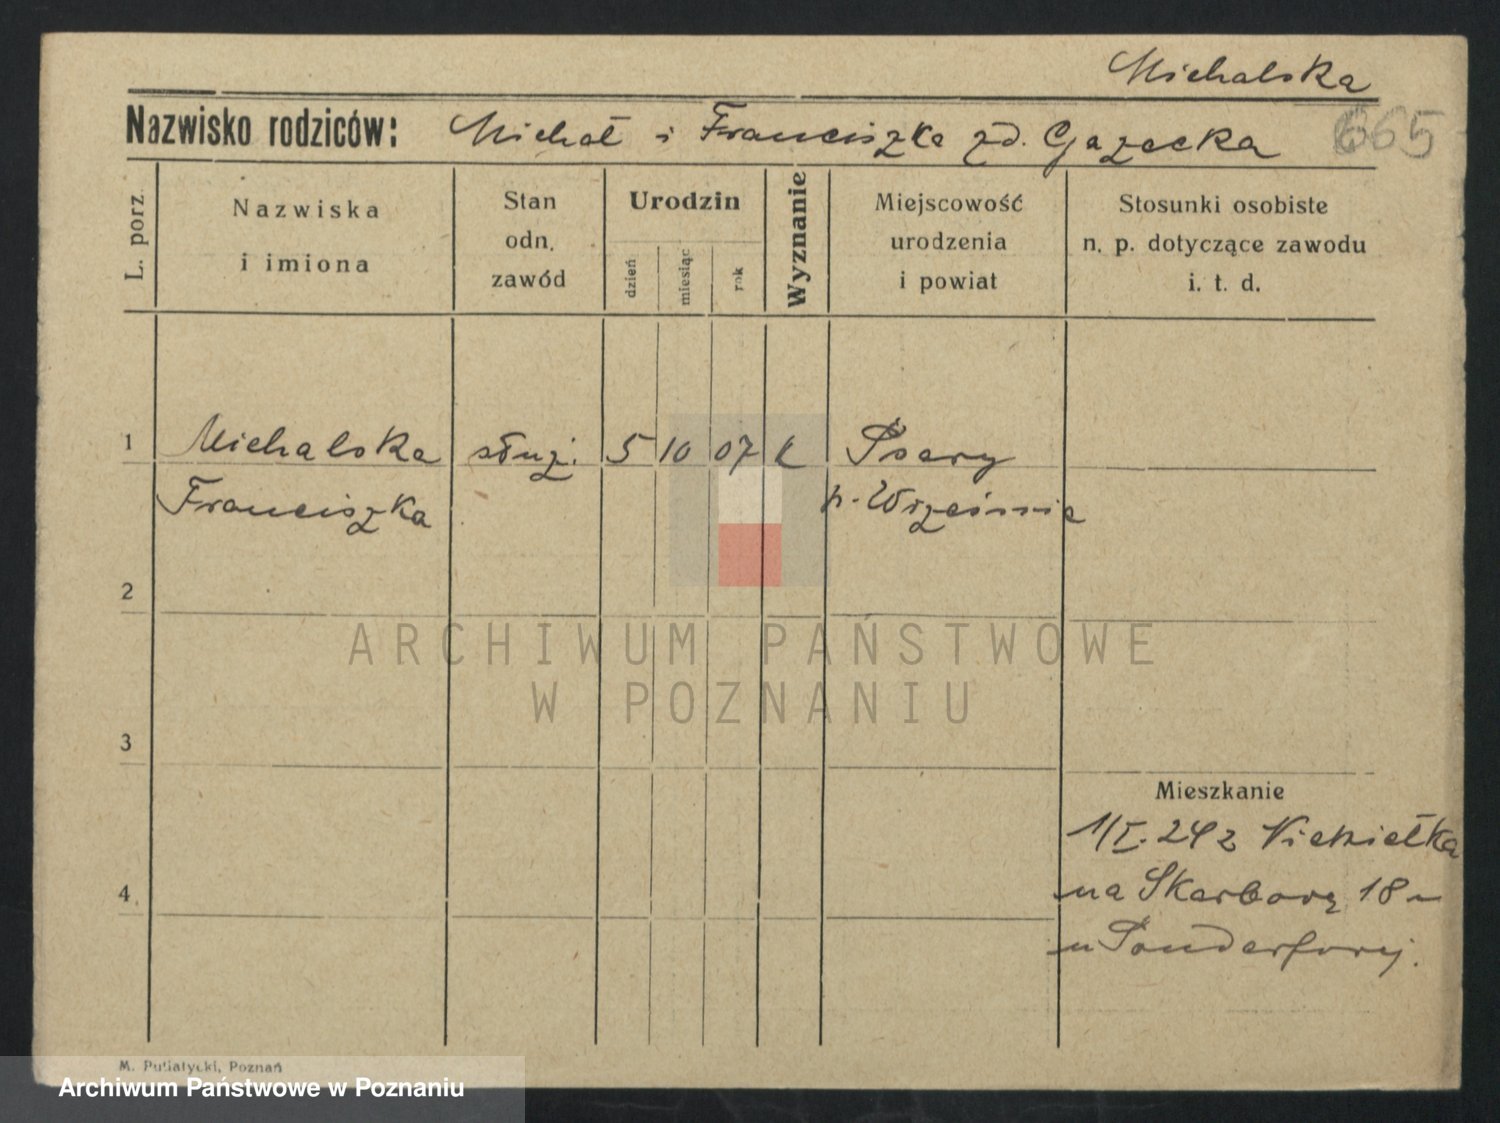 Michalska
Nazwisko rodziców: Michał i Franciszka zd. Gazecka 665
L. porz.
Nazwiska
i imiona
Stan
odn.
zawód
Urodzin
dzień
miesiąc
rok
Wyznanie
Miejscowość
urodzenia
i powiat
Stosunki osobiste
n. p. dotyczące zawodu
i. t. d.
1 Michalska służ. 5 10 07 k Psary
Franciszka p. Września
2
ARCHIWUM PAŃSTWOWE
W POZNANIU
3
Mieszkanie
1/I. 24 z
4
na Skarbową 18
u
M. Putiatycki, Poznań
Archiwum Państwowe w Poznaniu